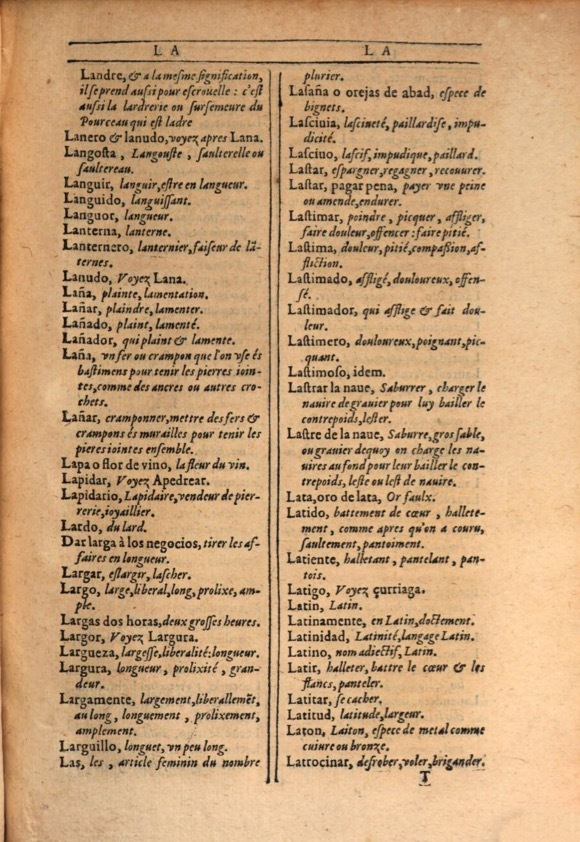 LA
Landre, & a la mesme signification,
il se prend aussi pour escrouelle : c'est
aussi la lardrerie ou sursemeure du
Pourceau qui est ladre
Lanero & lanudo, voyez apres Lana.
Langosta, Langouste, saulterelle ou
saultereau.
Languir, languir, estre en langueur.
Languido, languissant.
Languor, langueur.
Lanterna, lanterne.
Lanternero, lanternier, faiseur de lã-
ternes.
Lanudo, Voyez Lana.
Laña, plainte, lamentation.
Lañar, plaindre, lamenter.
Lañado, plaint, lamenté.
Lañador, qui plaint & lamente.
Laña, vn fer ou crampon que l'on vse és
bastimens pour tenir les pierres ioin-
tes, comme des ancres ou autres cro-
chets.
Lañar, cramponner, mettre des fers &
crampons és murailles pour tenir les
pieres iointes ensemble.
Lapa o flor de vino, la fleur du vin.
Lapidar, Voyez Apedrear.
Lapidario, Lapidaire, vendeur de pier-
rerie, ioyaillier.
Lardo, du lard.
Dar larga à los negocios, tirer les af-
faires en longueur.
Largar, eslargir, lascher.
Largo, large, liberal, long, prolixe, am-
ple.
Largas dos horas, deux grosses heures.
Largor, Voyez Largura.
Largueza, largesse, liberalité: longueur.
Largura, longueur, prolixité, gran-
deur.
Largamente, largement, liberallemẽt,
au long, longuement, prolixement,
amplement.
Larguillo, longuet, vn peu long.
Las, les, article feminin du nombre
LA
plurier.
Lasaña o orejas de abad, espece de
bignets.
Lasciuia, lasciueté, paillardise, impu-
dicité.
Lasciuo, lascif, impudique, paillard.
Lastar, espargner, regagner, recouurer.
Lastar, pagar pena, payer vne peine
ou amende, endurer.
Lastimar, poindre, picquer, affliger,
faire douleur, offencer : faire pitié.
Lastima, douleur, pitié, compassion, af-
fliction.
Lastimado, affligé, douloureux, offen-
sé.
Lastimador, qui afflige & fait dou-
leur.
Lastimero, douloureux, poignant, pic-
quant.
Lastimoso, idem.
Lastrar la naue, Saburrer, charger le
nauire de grauier pour luy bailler le
contrepoids, lester.
Lastre de la naue, Saburre, gros sable,
ou grauier dequoy on charge les na-
uires au fond pour leur bailler le con-
trepoids, leste ou lest de nauire.
Lata, oro de lata, Or faulx.
Latido, battement de cœur, hallete-
ment, comme apres qu'on a couru,
saultement, pantoiment.
Latiente, halletant, pantelant, pan-
tois.
Latigo, Voyez çurriaga.
Latin, Latin.
Latinamente, en Latin, doctement.
Latinidad, Latinité, langage Latin.
Latino, nom adiectif, Latin.
Latir, halleter, battre le cœur & les
flancs, panteler.
Latitar, se cacher.
Latitud, latitude, largeur.
Laton, Laiton, espece de metal comme
cuiure ou bronze.
Latrocinar, desrober, voler, brigander.
T